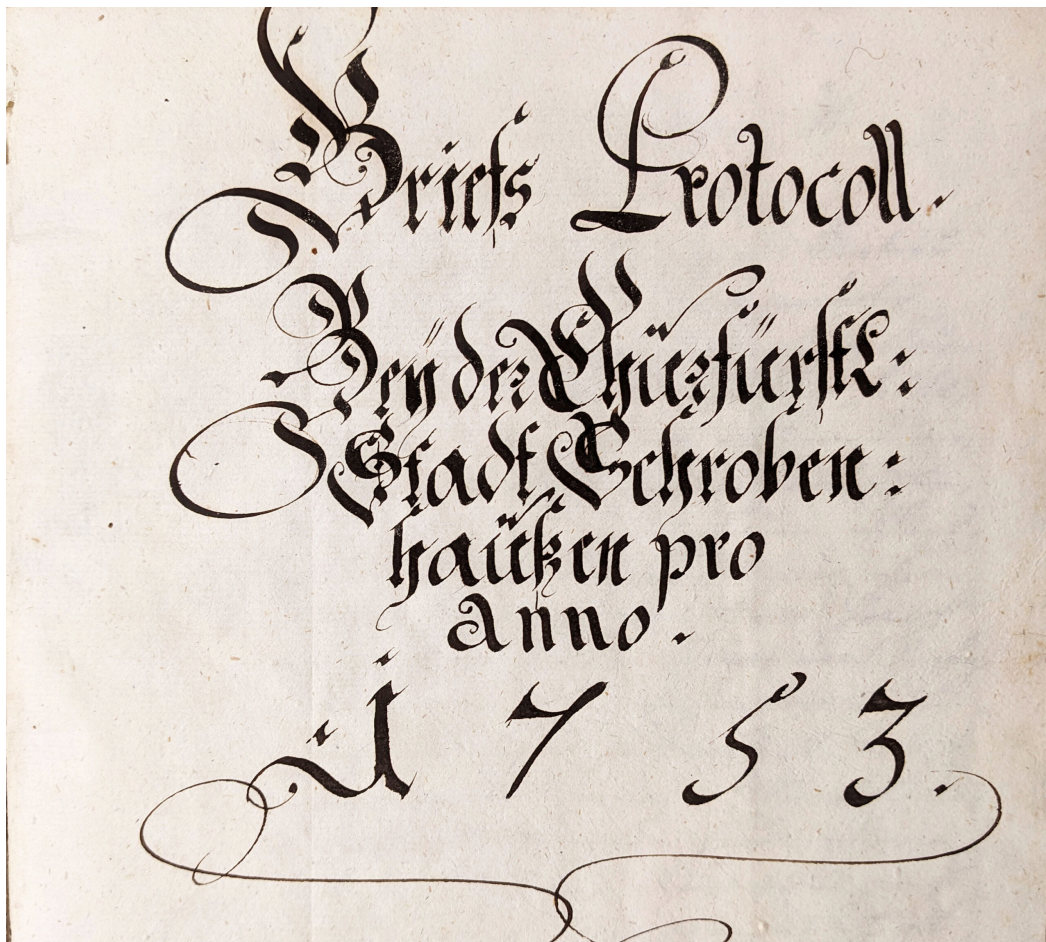 Briefs Protocoll.
Beÿ der Chürfürstl:
Stadt Schroben:
haüßen pro
Anno.
1753.